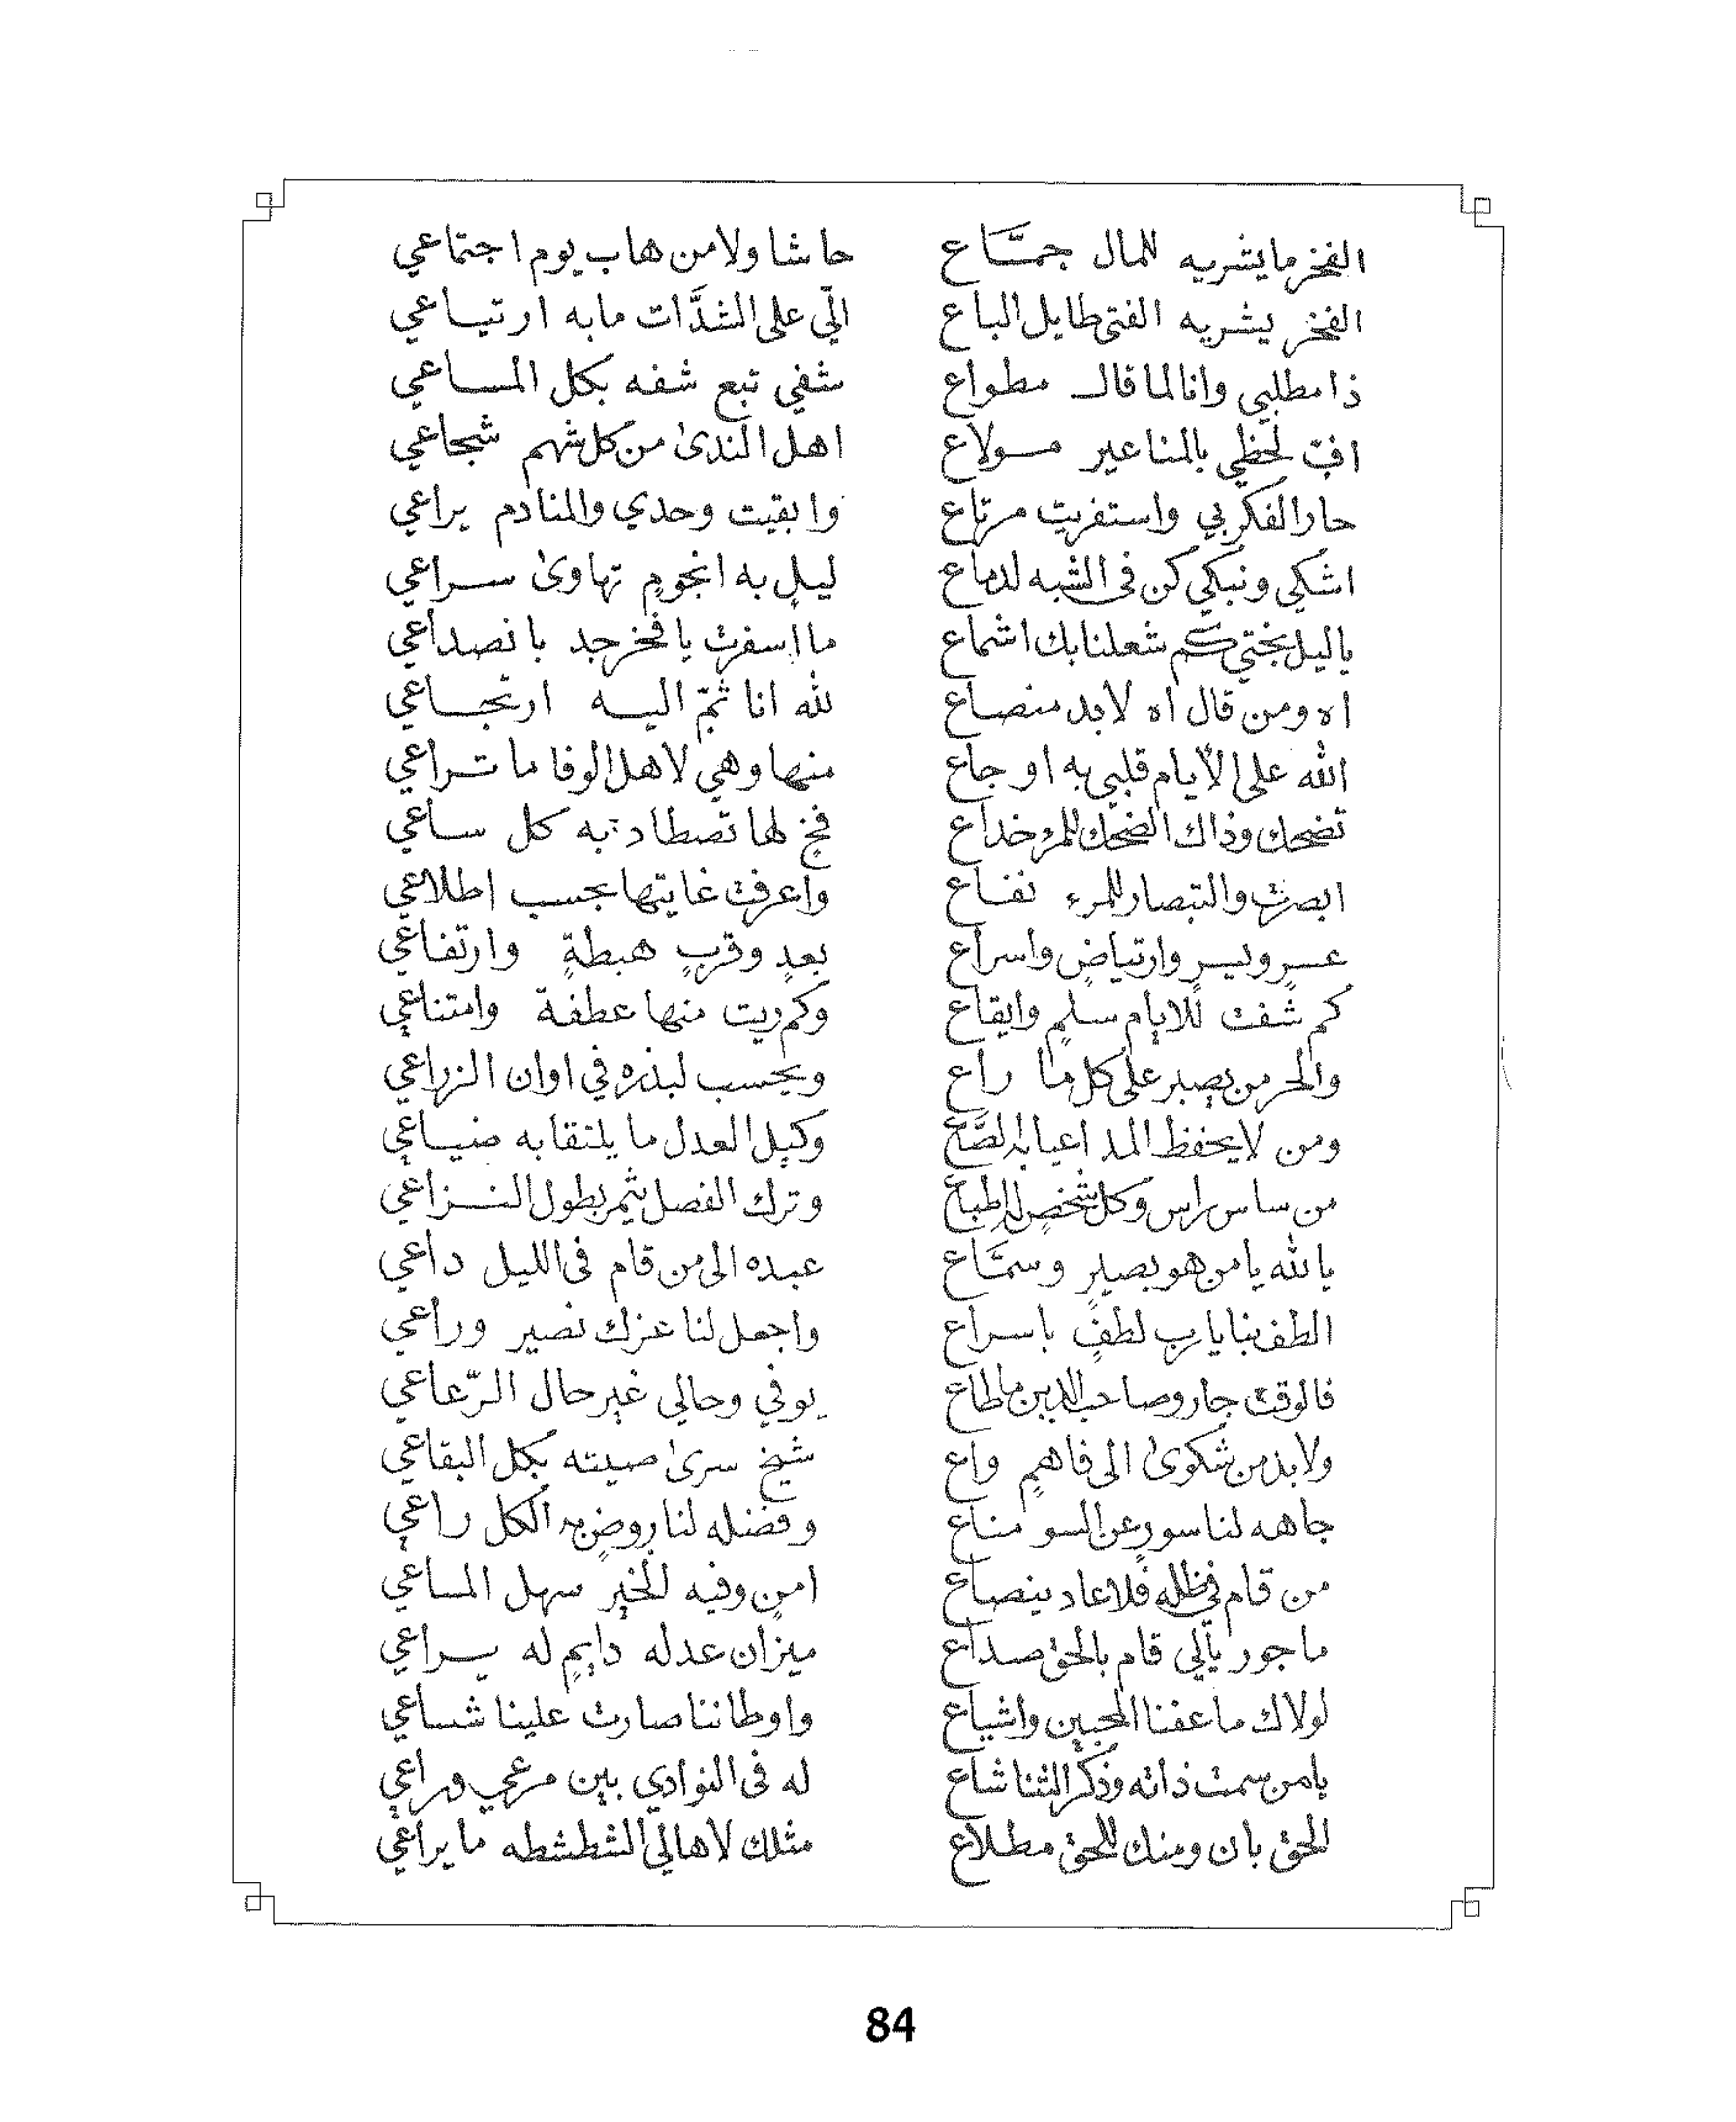 الفخر ما يشريه للمال جمَّاع حاشا ولا من هاب يوم اجتماعي
الفخر يشريه الفتى طايل الباع الّي على الشدَّات مابه ارتياعي
ذا مطلبي وانا لما قال مطواع شفي تبع شفه بكل المساعي
افٍ لحظي بالمناعير مولاع اهل الندى من كل شهم شجاعي
حار الفكر بي واستفريت مرتاع وابقيت وحدي والمنادم يراعي
اشكي ونبكي كن في الشبه لدماع ليلٍ به انجومٍ تهاوى سراعي
ياليل بختي كم شعلنا بك اشماع ما أسفرت يا فخر جد بانصداعي
اه ومن قال اه لابد منصاع لله انا ثمّ اليه ارتجاعي
الله على الأيام قلبي به اوجاع منها وهي لاهل الوفا ما تراعي
تضحك وذاك الضحك للمرء خداع فخٍ لها تصطاد به كل ساعي
ابصرت والتبصار للمرء نفاع واعرفت غايتها بحسب اطلاعي
عسرٍ ويسرٍ وارتياضٍ واسراع بعدٍ وقربٍ هبطةٍ وارتفاعي
كم شفت للايام سلمٍ وايقاع وكم ريت منها عطفة وامتناعي
والحر من يصبر على كل ما راع ويحسب لبذره في اوان الزراعي
ومن لا يحفظ المد اعيا به الصَّاع وكيل العدل ما يلتقا به ضياعي
من ساس راس وكل شخصٍ له اطباع وترك الفصل يثمر بطول النزاعي
يالله يامن هو بصيرٍ وسمَّاع عبده الى من قام في الليل داعي
الطف بنا يارب لطفٍ باسراع واجعل لنا عزك نصير وراعي
فالوقت جار وصاحب الدين ما طاع يوفي وحالي غير حال الرّعاعي
ولابد من شكوى الى فاهمٍ واع شيخ سرى صيته بكل البقاعي
جاهه لنا سورٍ عن السو مناع وفضله لنا روضٍ به الكل راعي
من قام في ظله فلا عاد ينصاع امنٍ وفيه للخير سهل المساعي
ماجور يالّي قام بالحق صداع ميزان عدله دايمٍ له يراعي
لولاك ما عفنا المحبين واشياع واوطاننا صارت علينا شساعي
يامن سمت ذاته وذكر الثنا شاع له في النوادي بين مرعي وراعي
الحق بان ومنك للحق مطلاع مثلك لاهالي الشطشطه ما يراعي
84